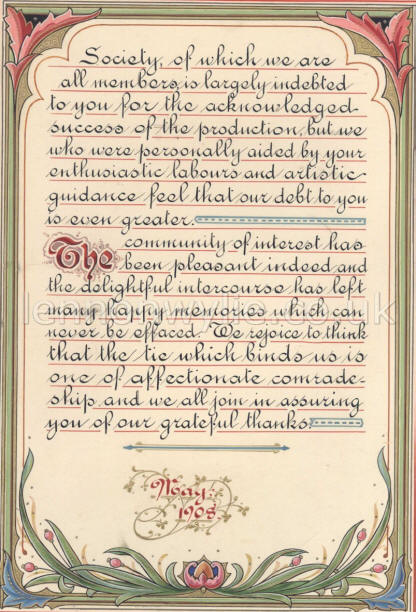 Society, of which we are
all members, is largely indebted
to you for the acknowledged
success of the production, but we
who were personally aided by your
enthusiastic labours and artistic
guidance feel that our debt to you
is even greater.
The community of interest has
been pleasant indeed and
the delightful intercourse has left
many happy memories which can
never be effaced. We rejoice to think
that the tie which binds us is
one of affectionate comrade-
ship and we all join in assuring
you of our grateful thanks.
May.
1908
lennonwylie.co.uk